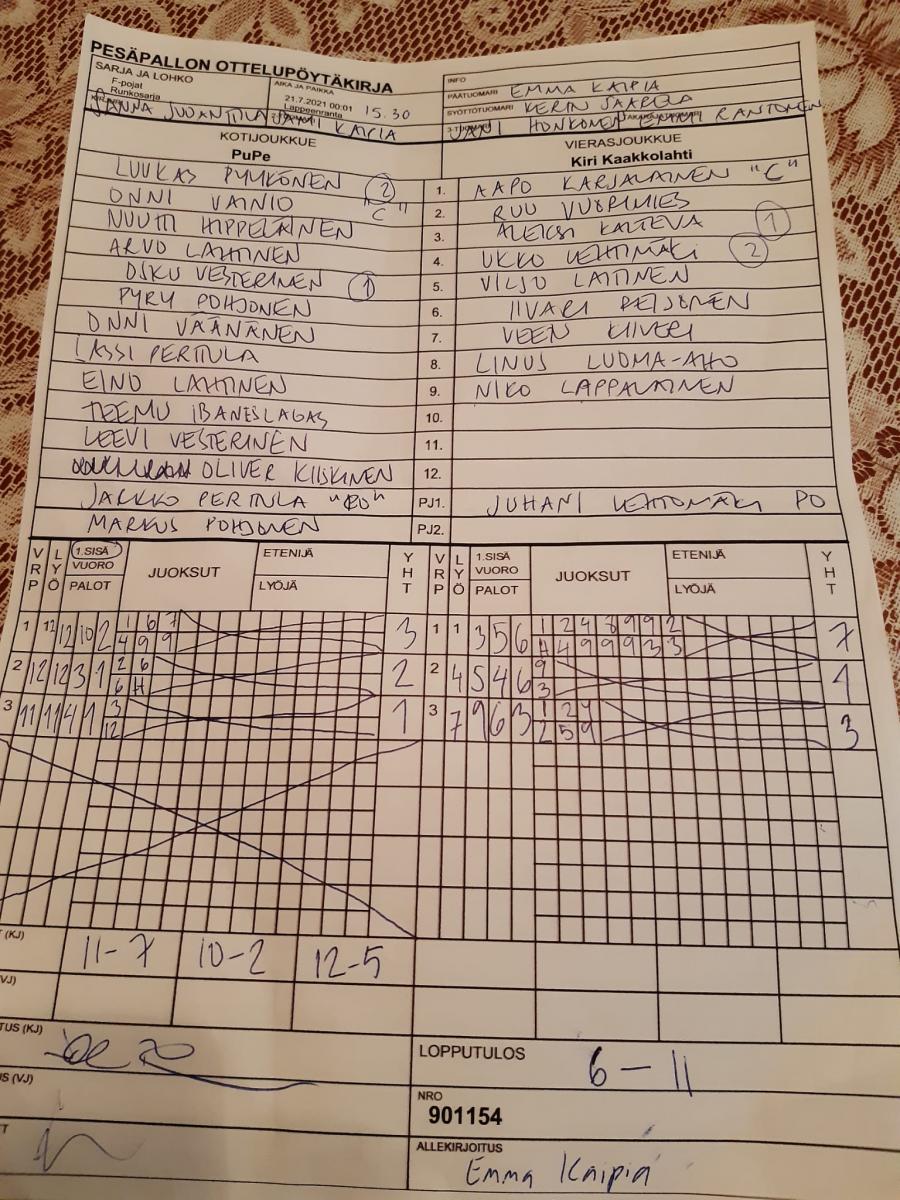 PESÄPALLON OTTELUPÖYTÄKIRJA
SARJA JA LOHKO
F-pojat
Runkosarja
AIKA JA PAIKKA
21.7.2021 00:01 15.30
Lappeenranta
INFO
PÄÄTUOMARI EMMA KAIPIA
SYÖTTÖTUOMARI
3-TUOMARI
KAIPIA
KOTIJOUKKUE
PuPe
VIERASJOUKKUE
Kiri Kaakkolahti
LUUKAS PYYKÖNEN 2
1.
AAPO KARJALAINEN "C"
ONNI VAINIO "C"
2.
RUU VUORIMIES
NUUTTI HIPPELÄINEN
3.
ALEKSI KALTEVA 1
ARVO LAHTINEN
4.
UKKO LEHTIMÄKI 2
OIKU VESTERINEN 1
5.
VILJO LAITINEN
PYRY POHJONEN
6.
IIVARI REIJONEN
ONNI VÄÄNÄNEN
7.
VEEN KIIVERI
LASSI PERTTULA
8.
LINUS LUOMA-AHO
EINO LAHTINEN
9.
NIKO LAPPALAINEN
TEEMU IBANESLAGAS
10.
LEEVI VESTERINEN
11.
OLIVER KIISKINEN
12.
JARKKO PERTTULA
PJ1.
JUHANI LEHTOMÄKI PO
MARKUS POHJONEN
PJ2.
VRP LYÖ 1.SISÄ VUORO PALOT JUOKSUT ETENIJÄ LYÖJÄ YHT
VRP LYÖ 1.SISÄ VUORO PALOT JUOKSUT ETENIJÄ LYÖJÄ YHT
1 12 12 10 2 1 6 7 3
4 9 9
1 1 3 5 6 1 2 4 8 9 9 2 7
4 4 9 9 9 3 3
2 12 12 3 1 2 6 2
6 4
2 4 5 4 6 9 1
3
3 11 11 4 1 3 1
12
3 7 9 6 3 1 2 4 3
2 5 9
(KJ) 11-7 10-2 12-5
VJ)
TUS (KJ)
LOPPUTULOS 6-11
S (VJ)
NRO
901154
T
ALLEKIRJOITUS
Emma Kaipia